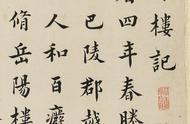 樓記
曆四年春滕
巴陵郡越
人和百癈
脩岳陽樓